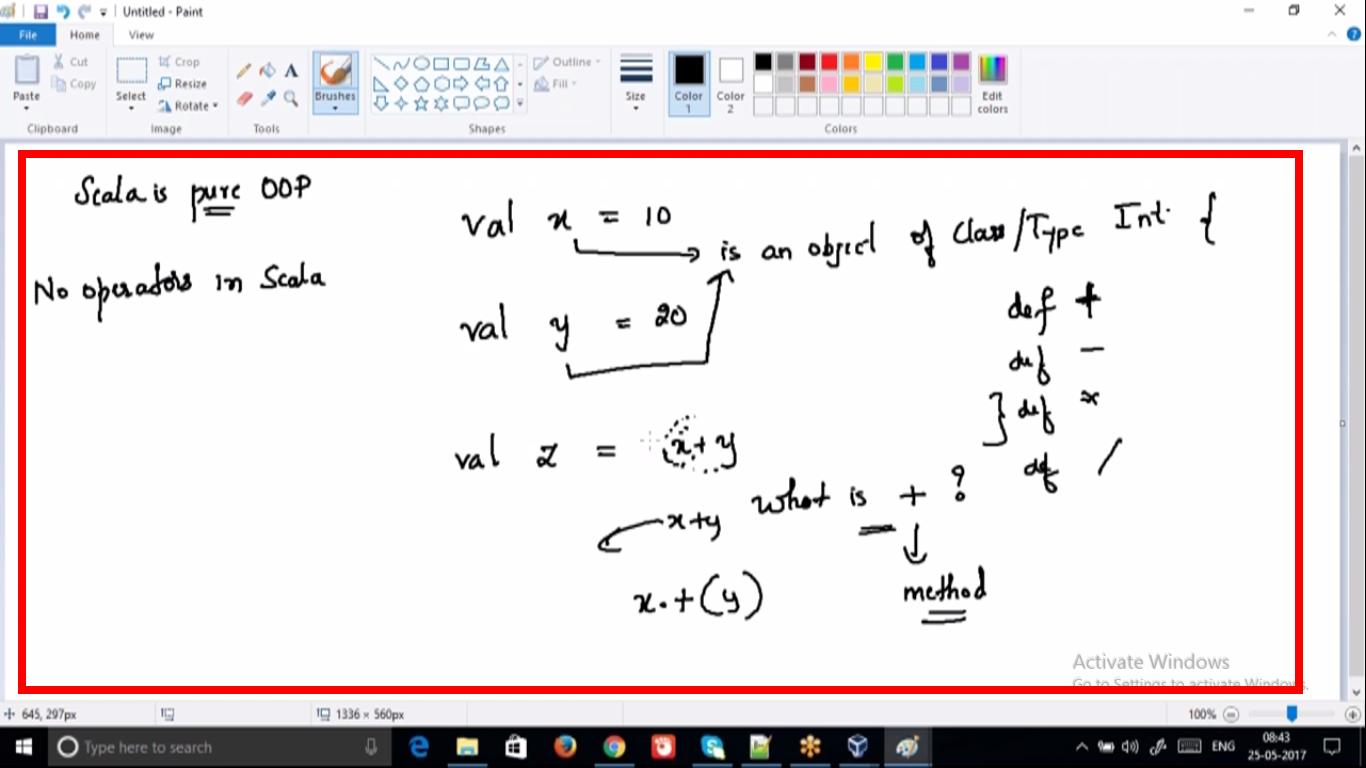 Untitled - Paint
File Home View
Paste
Cut
Copy
Clipboard
Select
Crop
Resize
Rotate
Image
A
Tools
Brushes
Outline
Fill
Shapes
Size
Color 1
Color 2
Edit colors
Colors
Scala is pure OOP
No operators in Scala
val x = 10
is an object of Class/Type Int {
val y = 20
def +
def -
} def *
def /
val z = x+y
what is + ?
x+y
x.+(y)
method
Activate Windows
Go to Settings to activate Windows.
645, 297px
1336 × 560px
100%
Type here to search
ENG
08:43
25-05-2017